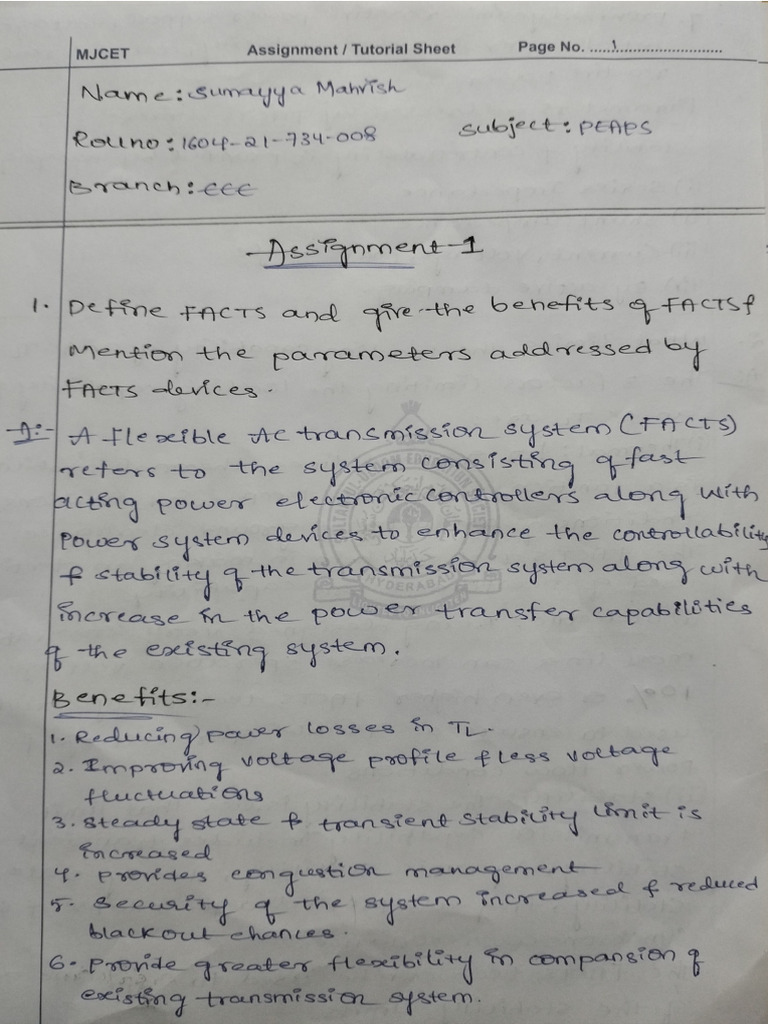 MJCET Assignment / Tutorial Sheet Page No. .....1..........................
Name: Sumayya Mahrish
Rollno: 1604-21-734-008 Subject: PEAPS
Branch: EEE
Assignment-1
1. Define FACTS and give the benefits of FACTS &
Mention the parameters addressed by
FACTS devices.
A:- A flexible AC transmission system (FACTS)
refers to the system consisting of fast
acting power electronic controllers along with
power system devices to enhance the controllability
& stability of the transmission system along with
increase in the power transfer capabilities
of the existing system.
Benefits:-
1. Reducing power losses in TL.
2. Improving voltage profile & less voltage
fluctuations
3. Steady state & transient stability limit is
increased
4. Provides congustion management
5. Security of the system increased & reduced
blackout chances.
6. Provide greater flexibility in compansion of
existing transmission system.
HYDERABAD